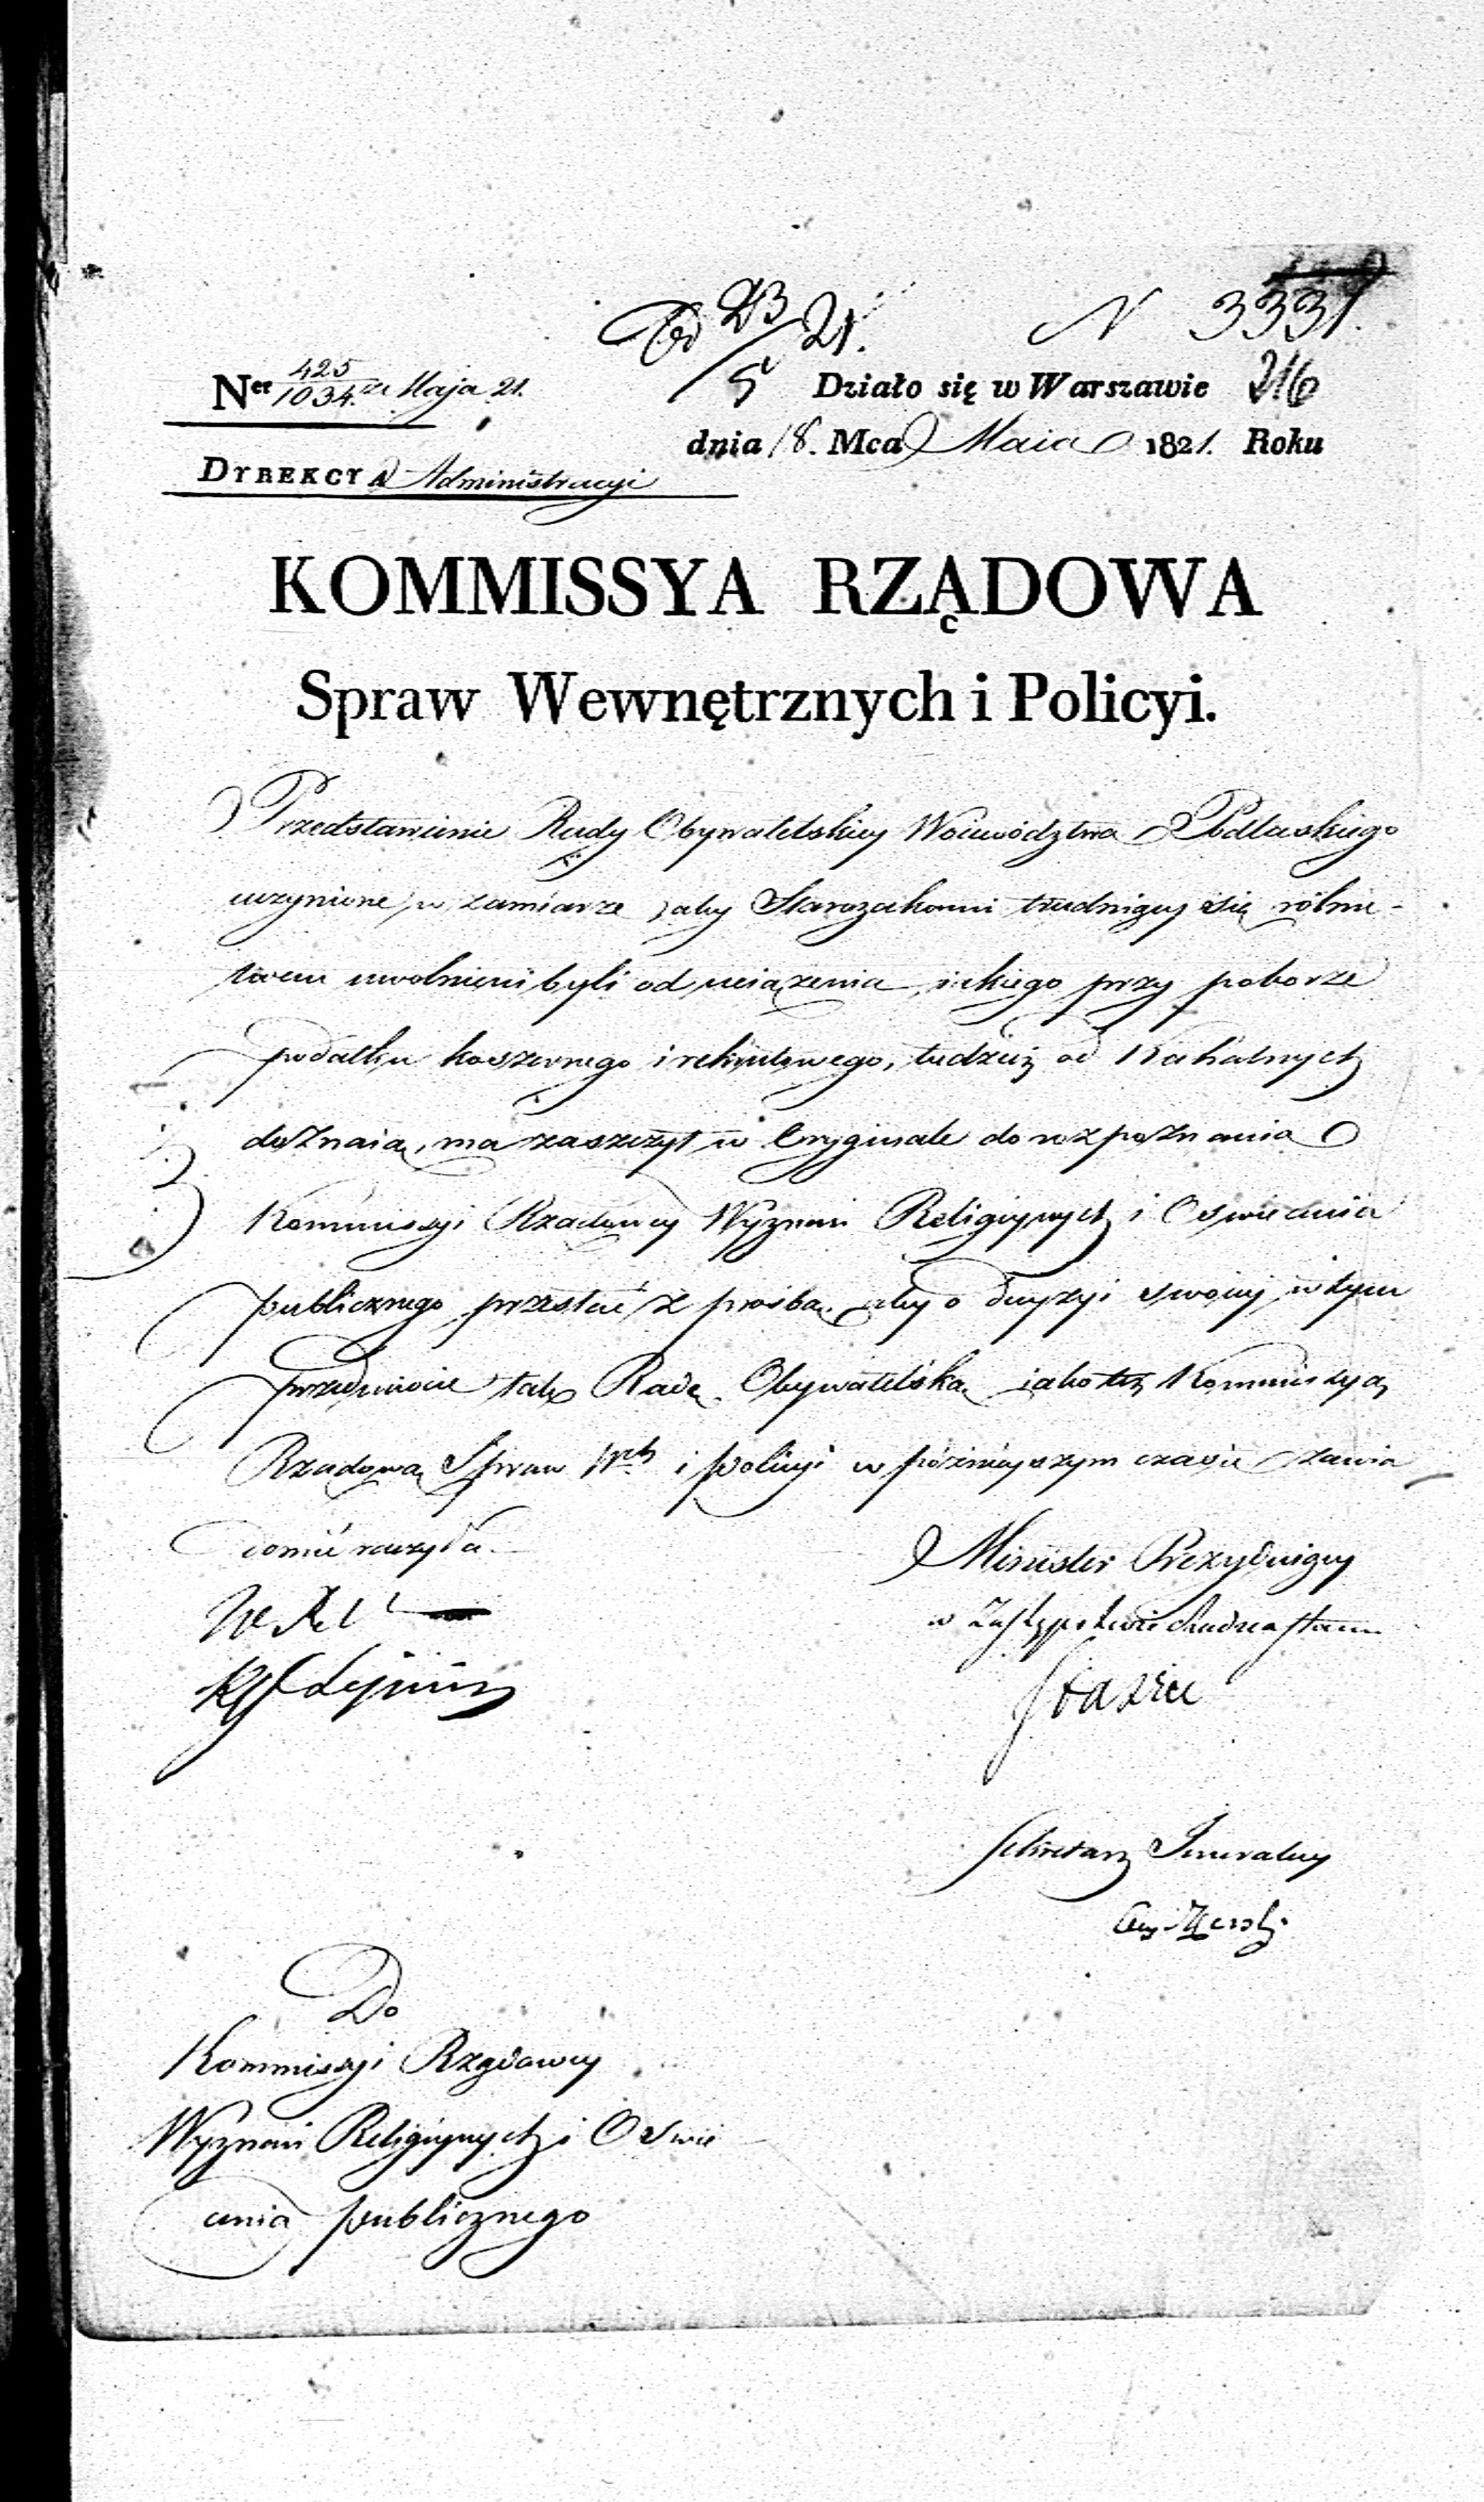 23/5 21. N 3331.
Ner 425/1034. ze Maja 21.
Działo się w Warszawie 216
dnia 18. Mca Maia 1821. Roku
DYREKCYA Administracyi
KOMMISSYA RZĄDOWA
Spraw Wewnętrznych i Policyi.
Przedstawienie Rady Obywatelskiey Woiewództwa Podlaskiego
uczynione w zamiarze, aby Starozakonni trudniący się rolnic-
twem uwolnieni byli od uciążenia, iakiego przy poborze
podatku koszernego i rekrutowego, tudzież od Kahalnych
doznaią, ma zaszczyt w Oryginale do rozpoznania
Kommissyi Rządowey Wyznań Religiynych i Oświecenia
publicznego przesłać z prośbą, aby o decyzyi swoiey w tym
przedmiocie tak Radę Obywatelską iako też Kommissyą
Rządową Spraw Wch i Policyi w późnieyszym czasie zawia
domić raczyła.
Minister Prezyduiący
w Zastępstwie Radca Stanu
Staszic
Sekretarz Jeneralny
Do
Kommissyi Rządowey
Wyznań Religiynych i Oświe
cenia publicznego